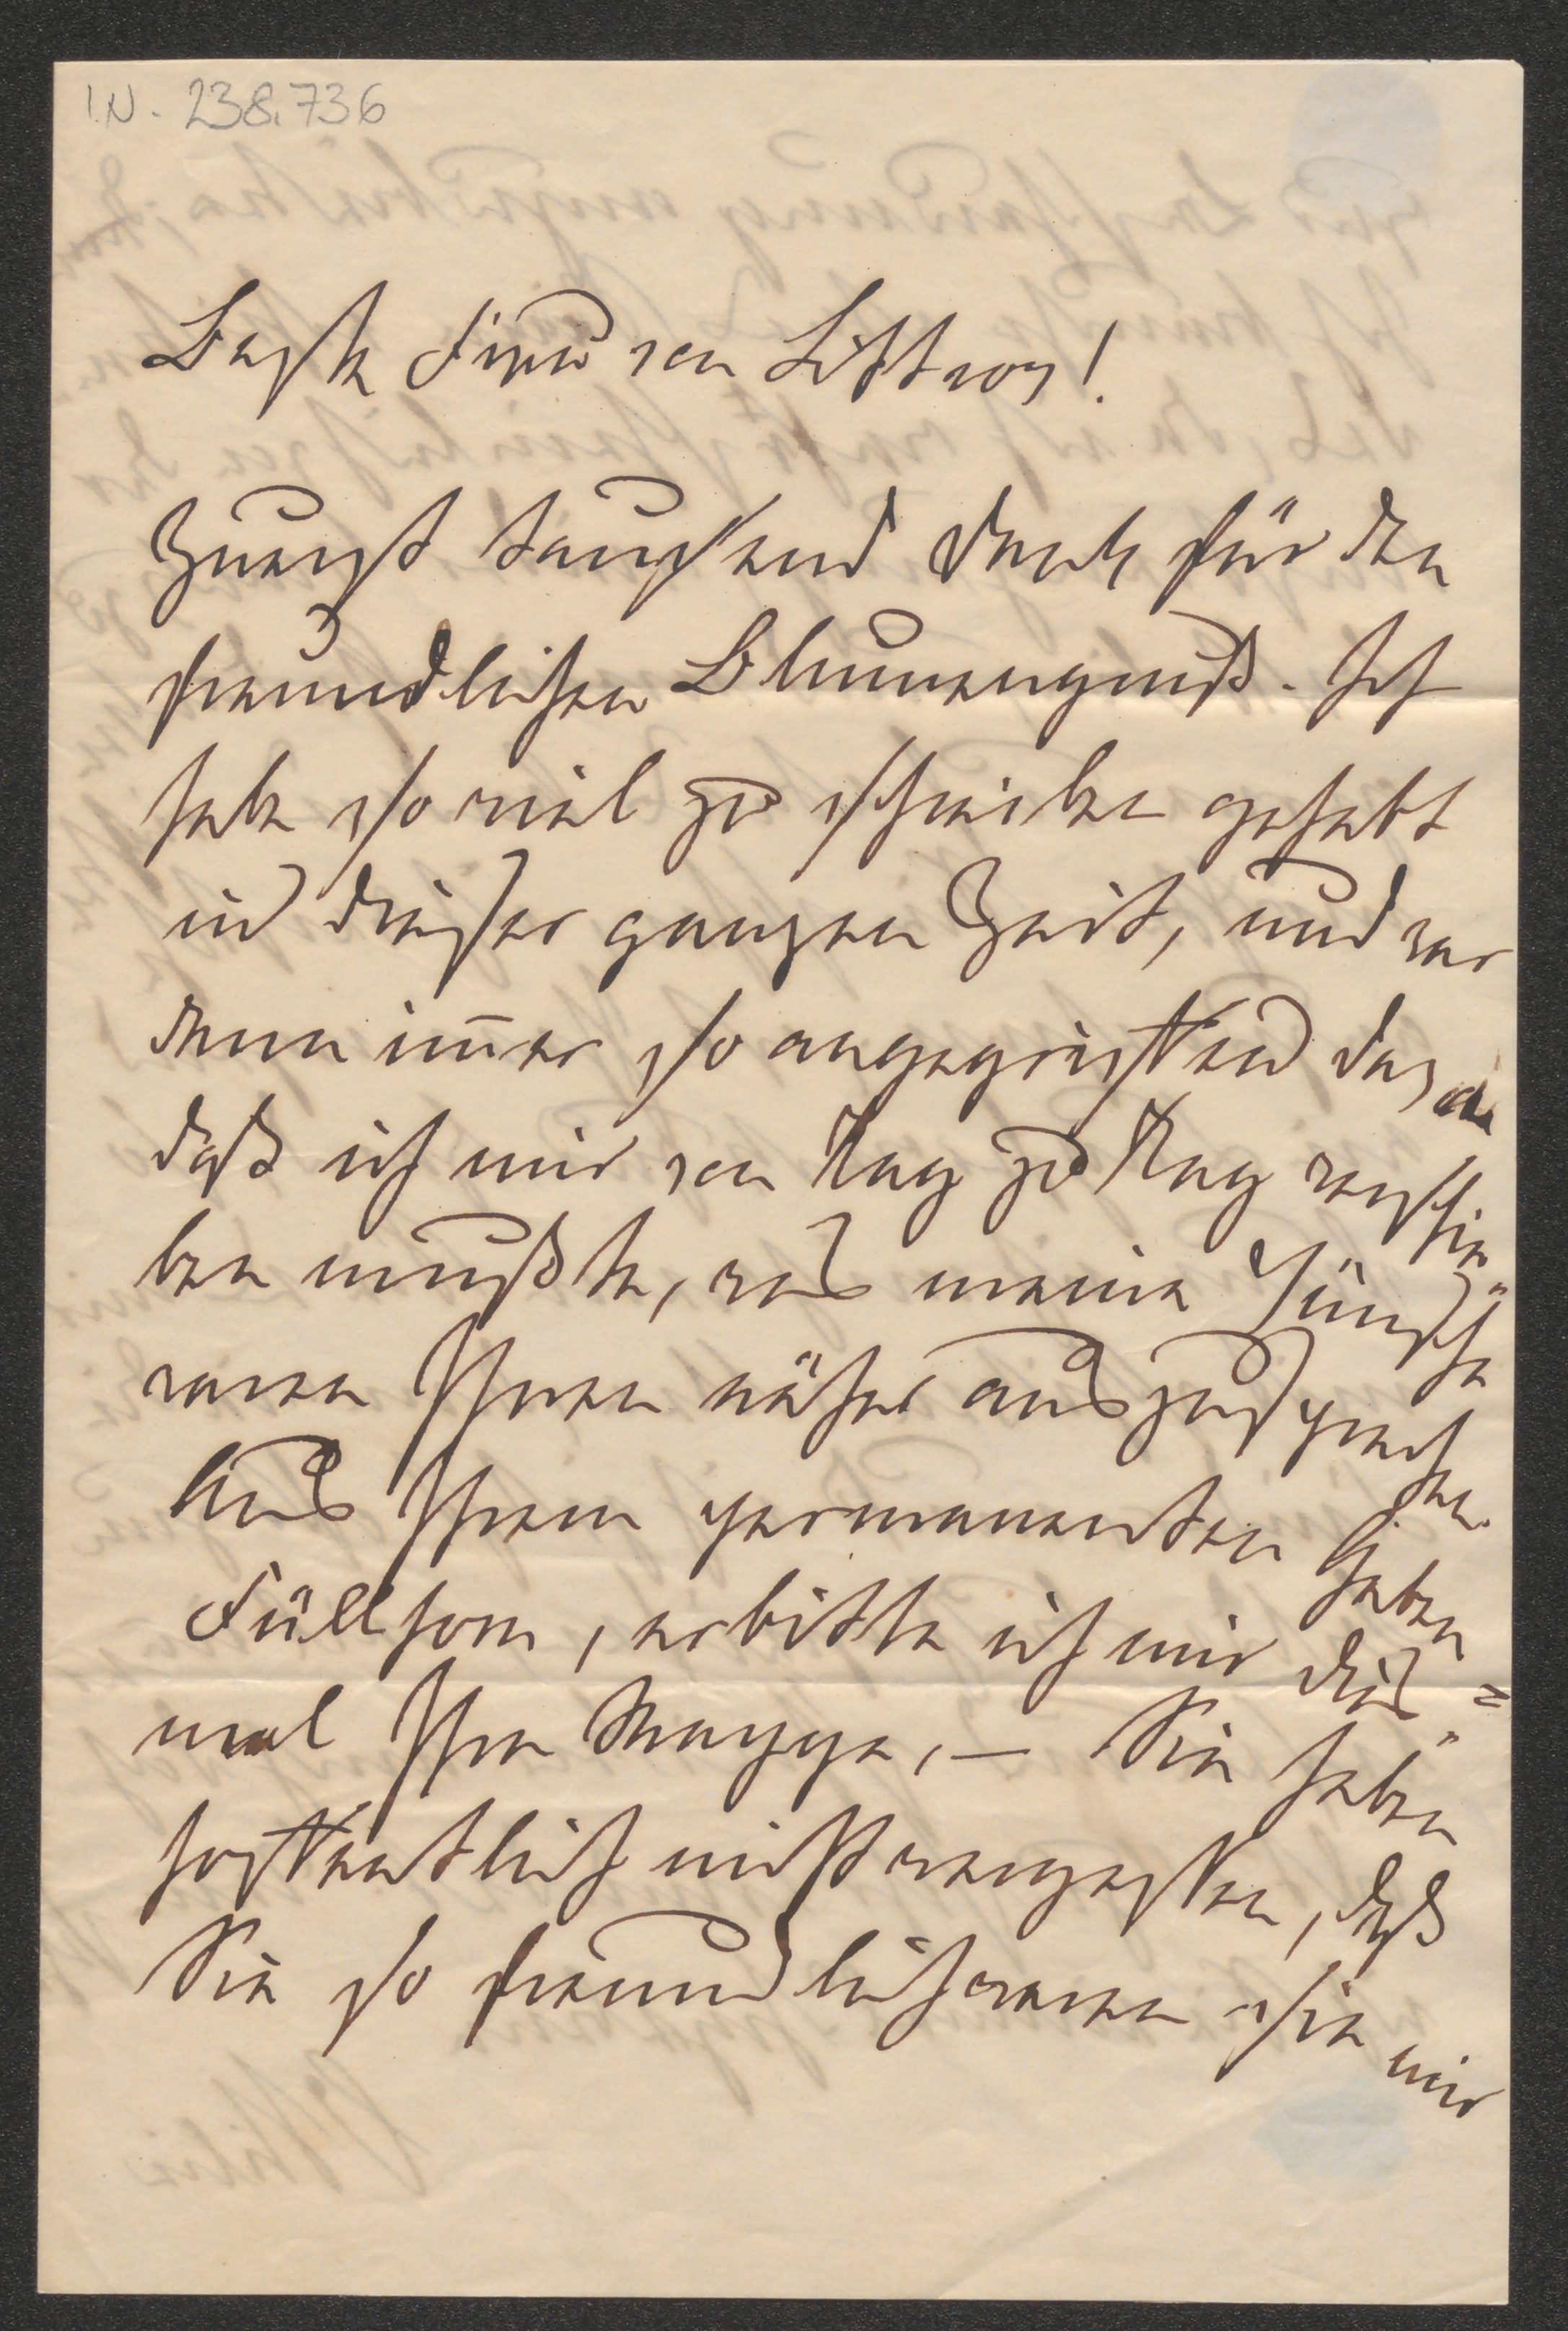 I.N. 238.736
Beste Frau von Littrow!
Zuerst tausend Dank für den
freundlichen Blumengruß. Ich
habe so viel zu schreiben gehabt
in dieser ganzen Zeit, und war
dann im̅er so angegriffen
daß ich mir von Tag zu Tag verschie-
ben mußte, was meine Wünsche
waren Ihnen näher auszusprechen.
Aus Ihrem permanenten Gaben
Füllhorn, erbitte ich mir dies=
mal Ihre Mappe, — Sie haben
hoffentlich nicht vergessen, daß
Sie so freundlich waren sie mir